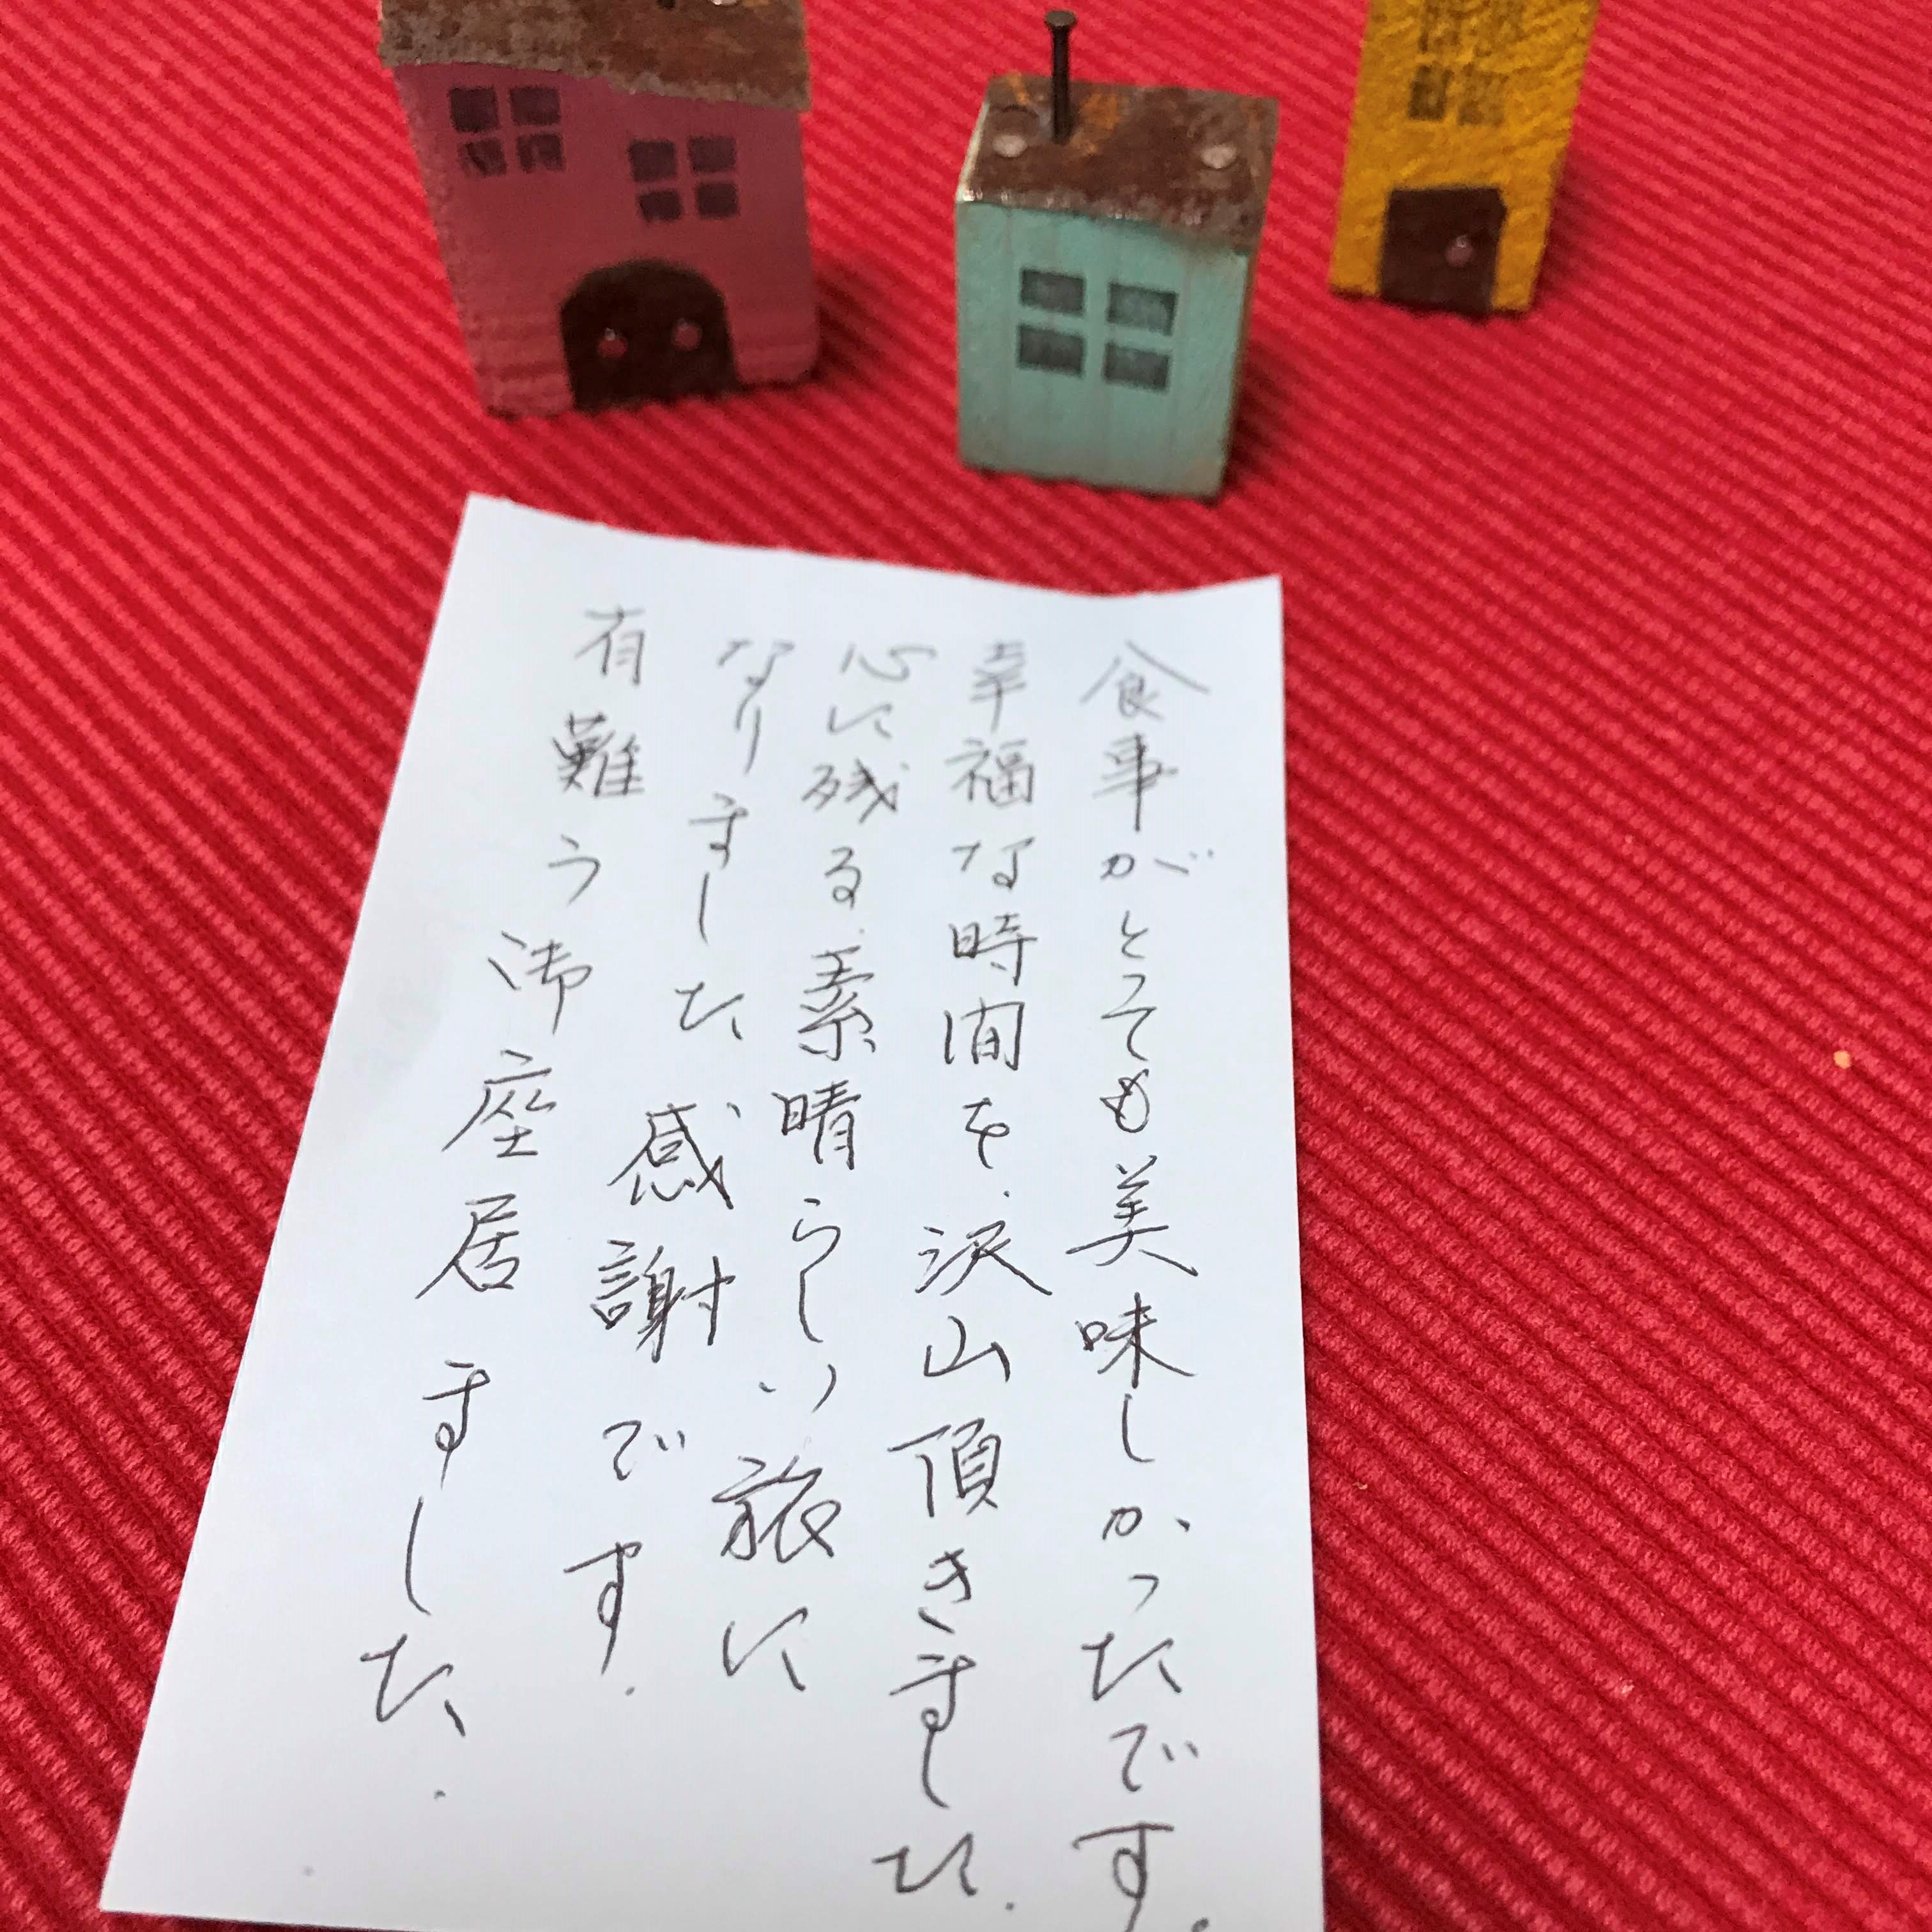 食事がとっても美味しかったです。
幸福な時間を沢山頂きました.
心に残る素晴らしい旅に
なりました感謝です.
有難う御座居ました.